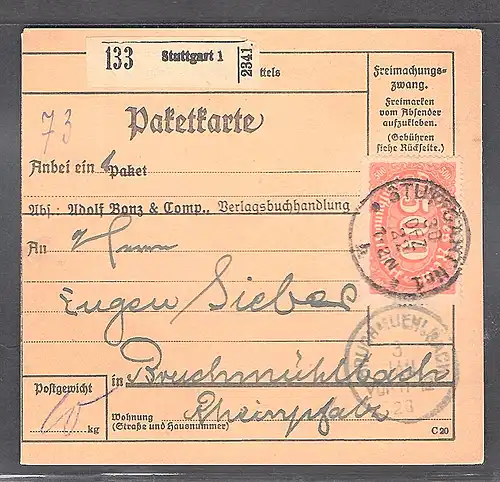 133 Stuttgart 1 2341.
ttels
Freimachungs-
zwang.
Freimarken
vom Absender
aufzukleben.
(Gebühren
siehe Rückseite.)
73
Paketkarte
Anbei ein 1 Paket
Abs.: Adolf Bonz & Comp., Verlagsbuchhandlung
An Herrn
Eugen Sieber
in Bruchmühlbach
Rheinpfalz
Wohnung
(Straße und Hausnummer)
Postgewicht
kg
C 20
500
STUTTGART No.1
30
DEZ
22